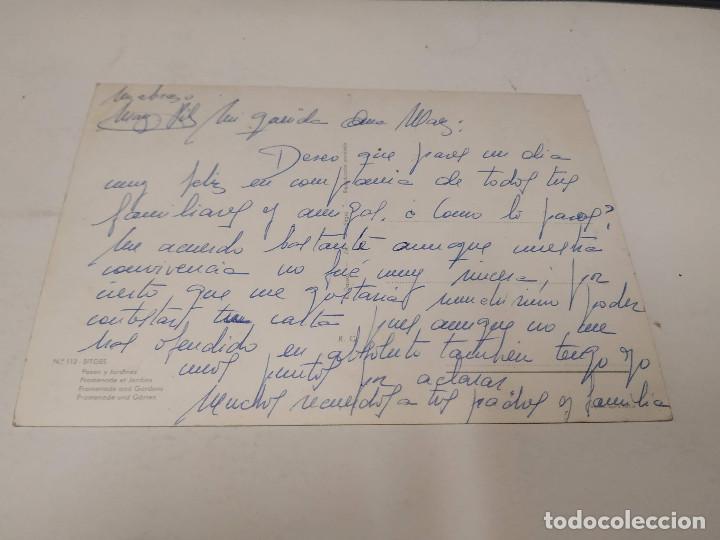 Mi querida Ana Mary:
Deseo que pases un dia
muy feliz en compania de todos tus
familiares y amigos. ¿ Como lo pases?
Me acuerdo bastante aunque nuestra
convivencia no fué muy sincera; por
cierto que me gustaria muchisimo poder
contestar tu carta pues aunque no me
has ofendido en absoluto tambien tengo yo
unos puntos por aclarar
Muchos recuerdos a tus padres y familia
Un abrazo
Mary
Nº 112 - SITGES
Paseo y Jardines
Promenade et Jardins
Promenade and Gardens
Promenade und Gärten
todocoleccion.net